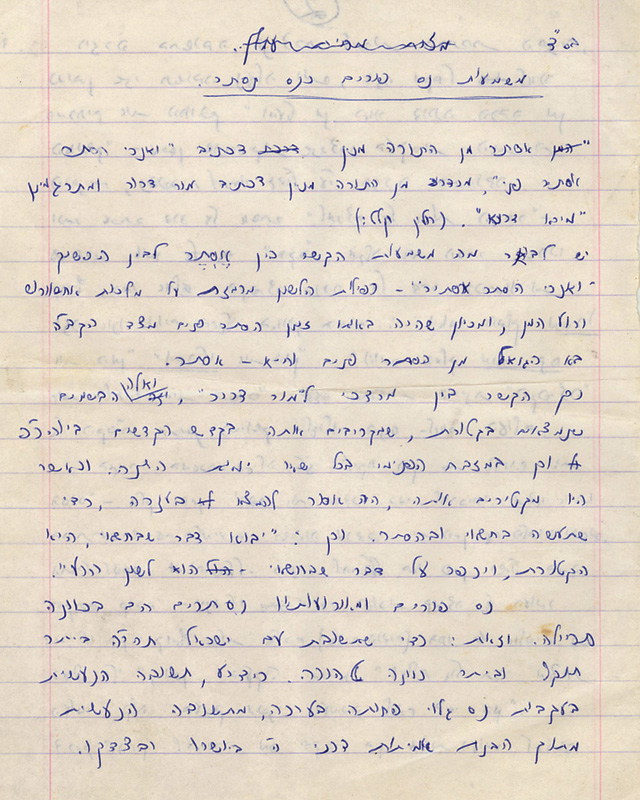 בס"ד
משמעות נס פורים כנס נסתר.
"אסתר מן התורה מנין" דכתיב "ואנכי הסתר
אסתיר פני", מרדכי מן התורה מנין דכתיב מור דרור ומתרגמינן
"מירא דכיא". (חולין קלט:)
יש לבאר מה משמעות הקשר בין אֶסְתֶר לבין הפסוק
"ואנכי הסתר אסתיר" - כפילות הלשון מרמזת על מלכות אחשורוש
ורוע המן, ומכיון שהיה באותו זמן הסתר פנים מצד הקב"ה
בא הגואל מן הסתר פנים והיא - אסתר.
וכן הקשר בין מרדכי ל"מור דרור", ואלה הבשמים
שנמצאים בקטורת, שמקריבים אותה בקדש הקדשים ביוה"כ
וכן במזבח הפנימי בכל שאר ימות השנה. וכאשר
היו מקטירים אותה, היה אסור להמצא בעזרה, כדי
שתעשה בחשאי ובהסתר. וכן: "יבוא דבר שבחשאי, היא
הקטורת, ויכפר על דבר שבחשאי - הוא לשון הרע".
נס פורים ומאורעותיו נסתרים הם בכוונה
תחילה. וזאת: כדי שתשובת עם ישראל תהיה ביתר
חוזק וביתר כוונה טהורה. כידוע, תשובה הנעשית
בעקבות נס גלוי פחותה בערכה, מתשובה הנעשית
מתוך הבנה שאמיתית דרכי ה' ביושרו ובצדקו.